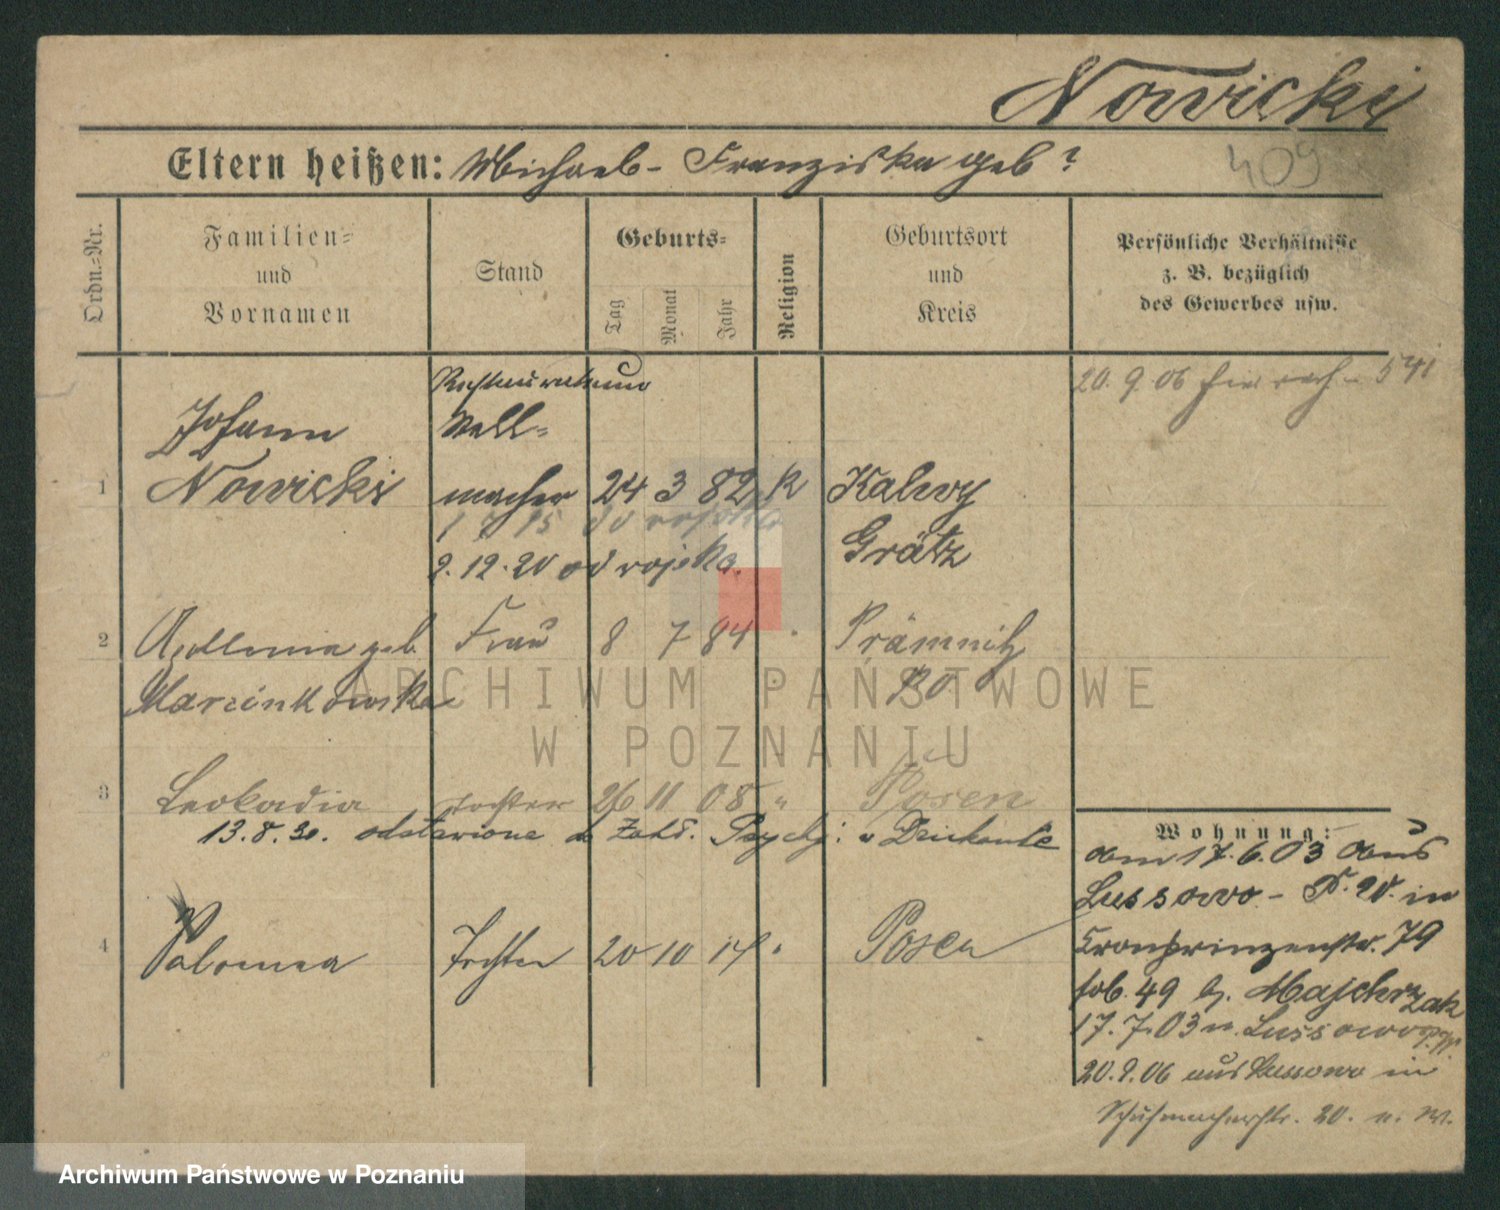 Nowicki
Eltern heißen: Michael - Franziska geb ?
409
Ordn.-Nr.
Familien-
und
Vornamen
Stand
Geburts-
Tag
Monat
Jahr
Religion
Geburtsort
und
Kreis
Persönliche Verhältnisse
z. B. bezüglich
des Gewerbes usw.
20. 9. 06 541
Johann Stell-
1 Nowicki macher 24 3 82 K Kalwy
1 7 15 od wojska
Grätz
2. 12. 20 od wojska.
2 Apollonia geb. Frau 8 7 84 " Prämnitz
Marcinkowska PO
3 Leokadia Tochter 26 11 08 " Posen
13. 8. 30. odstawiona do Zakł. Psychj: w Dziekance
4 Salomea Tochter 20 10 14 " Posen
Wohnung:
am 17. 6. 03 aus
Lussowo - P. W. in
Kronprinzenstr. 79
49 b. Majchrzak
17. 7. 03 n. Lussowo
20. 9. 06 aus Lussowo in
Schuhmacherstr. 20. n. W.
ARCHIWUM PAŃSTWOWE
W POZNANIU
Archiwum Państwowe w Poznaniu